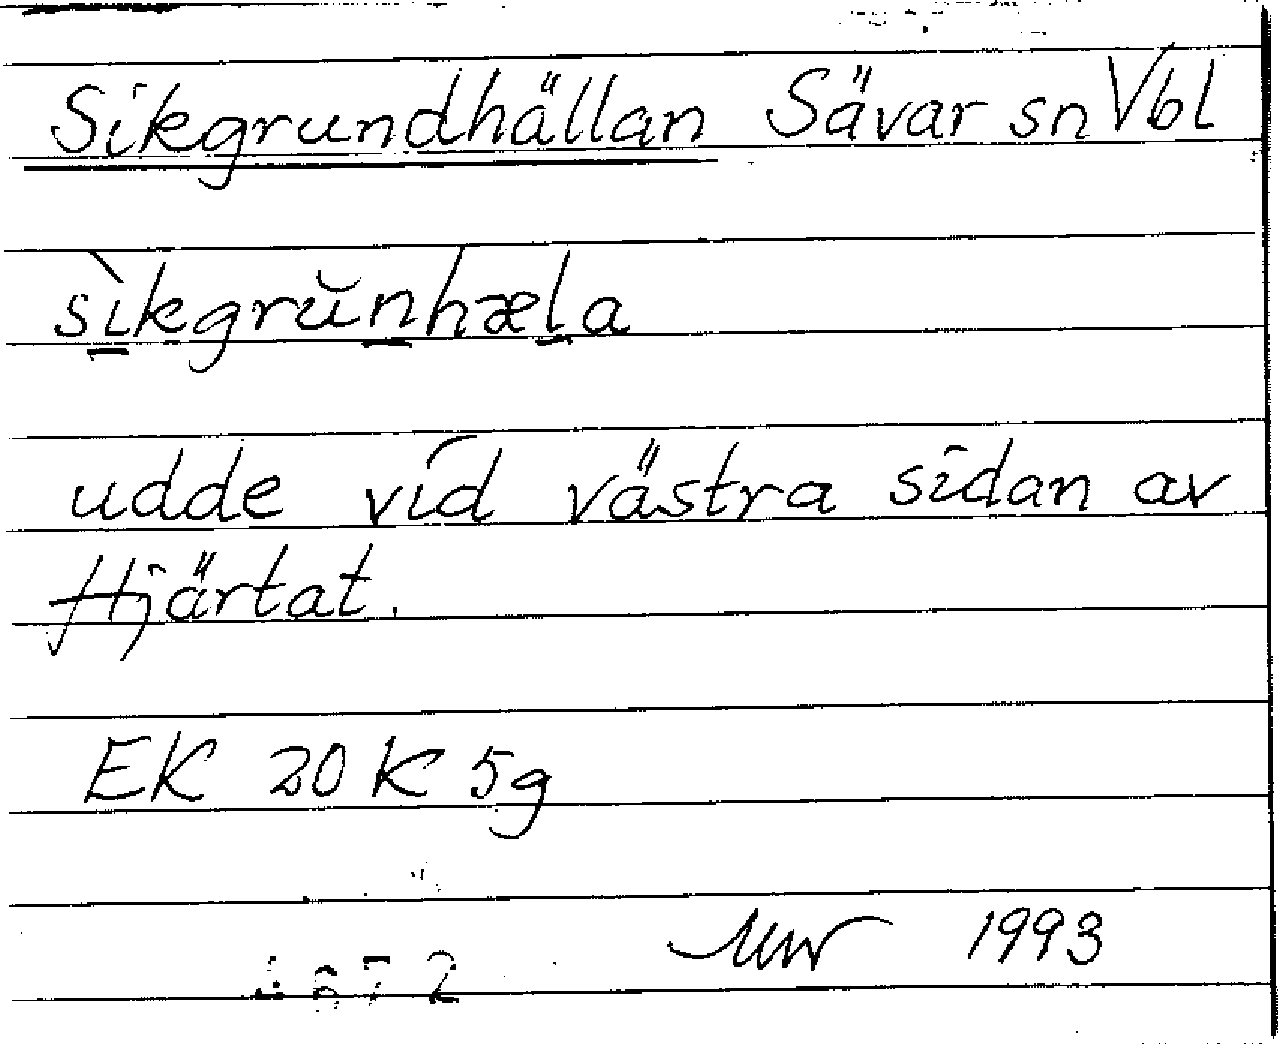 Sikgrundhällan Sävar sn Vbl
sìkgrŭnhæla
udde vid västra sidan av
Hjärtat.
EK 20 K 5g
1993